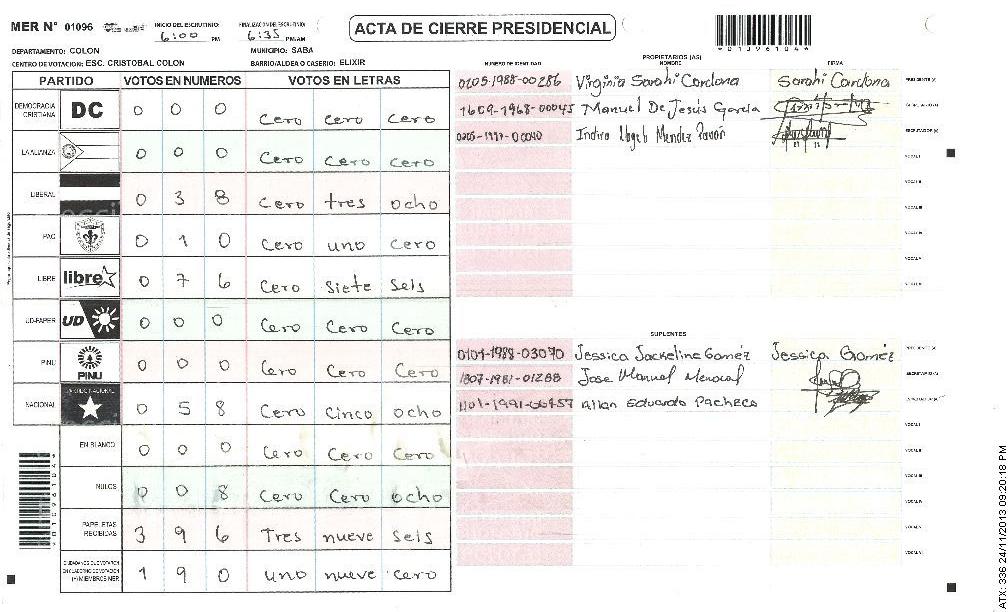 MER N° 01096 INICIO DEL ESCRUTINIO: 6:00 PM FINALIZACION DEL ESCRUTINIO: 6:35 PM/AM
ACTA DE CIERRE PRESIDENCIAL
DEPARTAMENTO: COLON MUNICIPIO: SABA
CENTRO DE VOTACION: ESC. CRISTOBAL COLON BARRIO/ALDEA O CASERIO: ELIXIR
PARTIDO VOTOS EN NUMEROS VOTOS EN LETRAS
DEMOCRACIA CRISTIANA DC 0 0 0 Cero Cero Cero
LA ALIANZA 0 0 0 Cero Cero Cero
LIBERAL 0 3 8 Cero tres ocho
PAC 0 1 0 Cero uno Cero
LIBRE libre 0 7 6 Cero Siete Seis
UD-FAPER UD 0 0 0 Cero Cero Cero
PINU PINU 0 0 0 Cero Cero Cero
NACIONAL 0 5 8 Cero Cinco ocho
EN BLANCO 0 0 0 Cero Cero Cero
NULOS 0 0 8 Cero Cero ocho
PAPELETAS RECIBIDAS 3 9 6 Tres nueve Seis
CIUDADANOS QUE VOTARON EN CUADERNO DE VOTACION (+) MIEMBROS MER 1 9 0 uno nueve Cero
PROPIETARIOS (AS)
NUMERO DE IDENTIDAD NOMBRE FIRMA
0205-1988-00286 Virginia Sarahi Cardona Sarahi Cardona PRESIDENTE(A)
1609-1968-00045 Manuel De Jesús García
Indira Mendez Pavon ESCRUTADOR(A)
VOCAL I
VOCAL II
VOCAL III
VOCAL IV
VOCAL V
VOCAL VI
SUPLENTES
0104-1988-03070 Jessica Jackeline Goméz Jessica Goméz PRESIDENTE(A)
1807-1981-01288 Jose Manuel SECRETARIO(A)
1101-1991-00457 Allan Eduardo Pacheco ESCRUTADOR(A)
VOCAL I
VOCAL II
VOCAL III
VOCAL IV
VOCAL V
VOCAL VI
ATX: 336 24/11/2013 09:20:18 PM